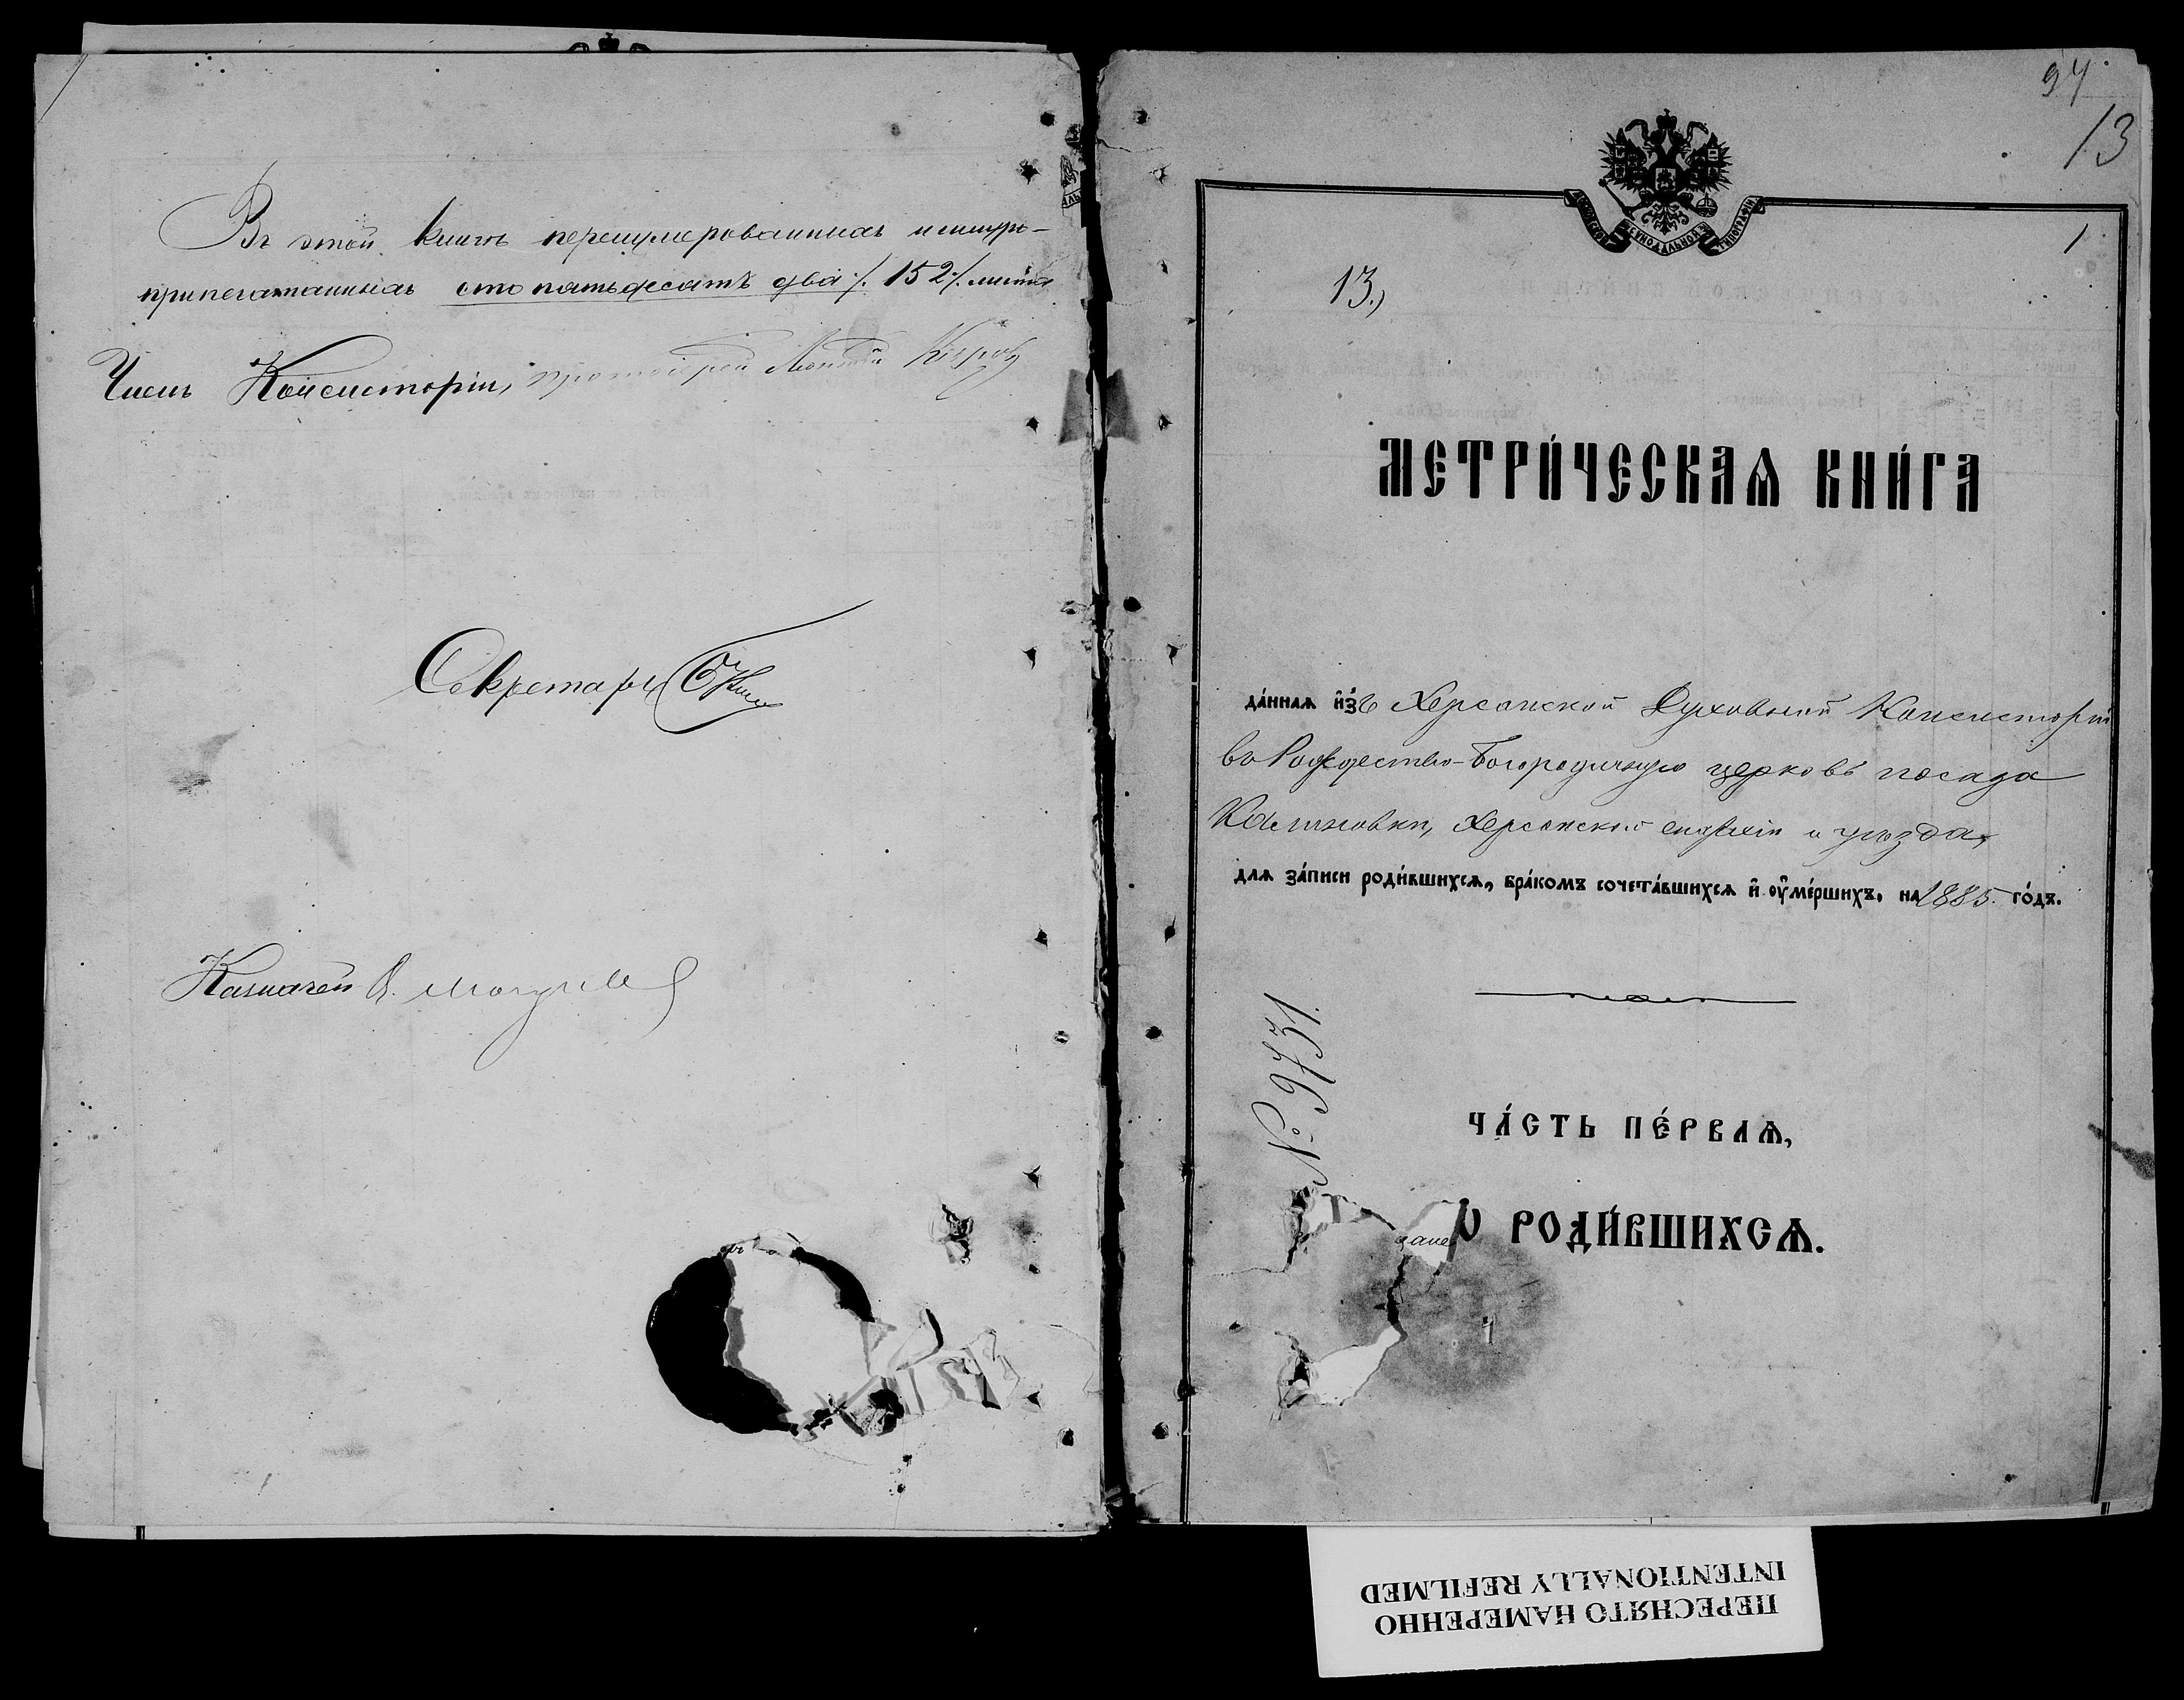 Въ этой книгѣ перенумерованныхъ и шнуро-
припечатанныхъ сто пятьдесятъ два ./. 152 ./. листа
Членъ Консисторіи, протоіерей
Секретарь
Казначей
94
13
1
13.)
МЕТРИ́ЧЕСКАѦ КНИ́ГА
да́ннаѧ и҆з̾ Херсонской Духовной Консисторіи
въ Рождество-Богородичную церковь посада
Калиновки, Херсонской епархіи и уѣзда,
длѧ за́писи роди́вшихсѧ, бра́комъ сочета́вшихсѧ и҆ ᲂу҆ме́ршихъ, на 1885 го́дъ.
№ 9731.
ЧА́СТЬ ПЕ́РВАѦ,
Ѡ РОДИ́ВШИХСѦ.
ПЕРЕСНЯТО НАМЕРЕННО
INTENTIONALLY REFILMED